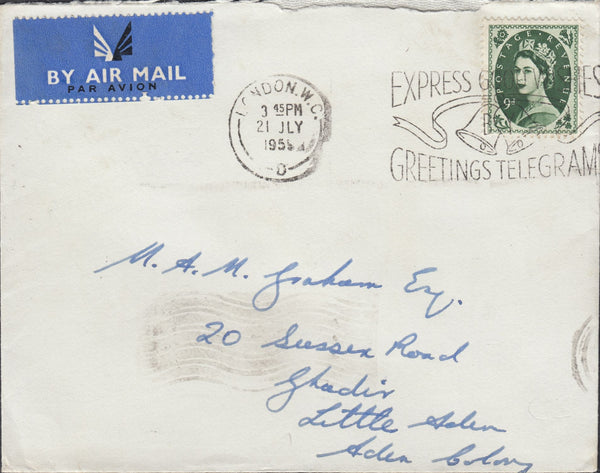 BY AIR MAIL
PAR AVION
LONDON.W.C.
3 45 PM
21 JLY
195
-D-
POSTAGE REVENUE
9D
EXPRESS G
ES
GREETINGS TELEGRAMS
M. A. M. Graham Esq.
20 Sussex Road
Ghadir
Little Aden
Aden Colony